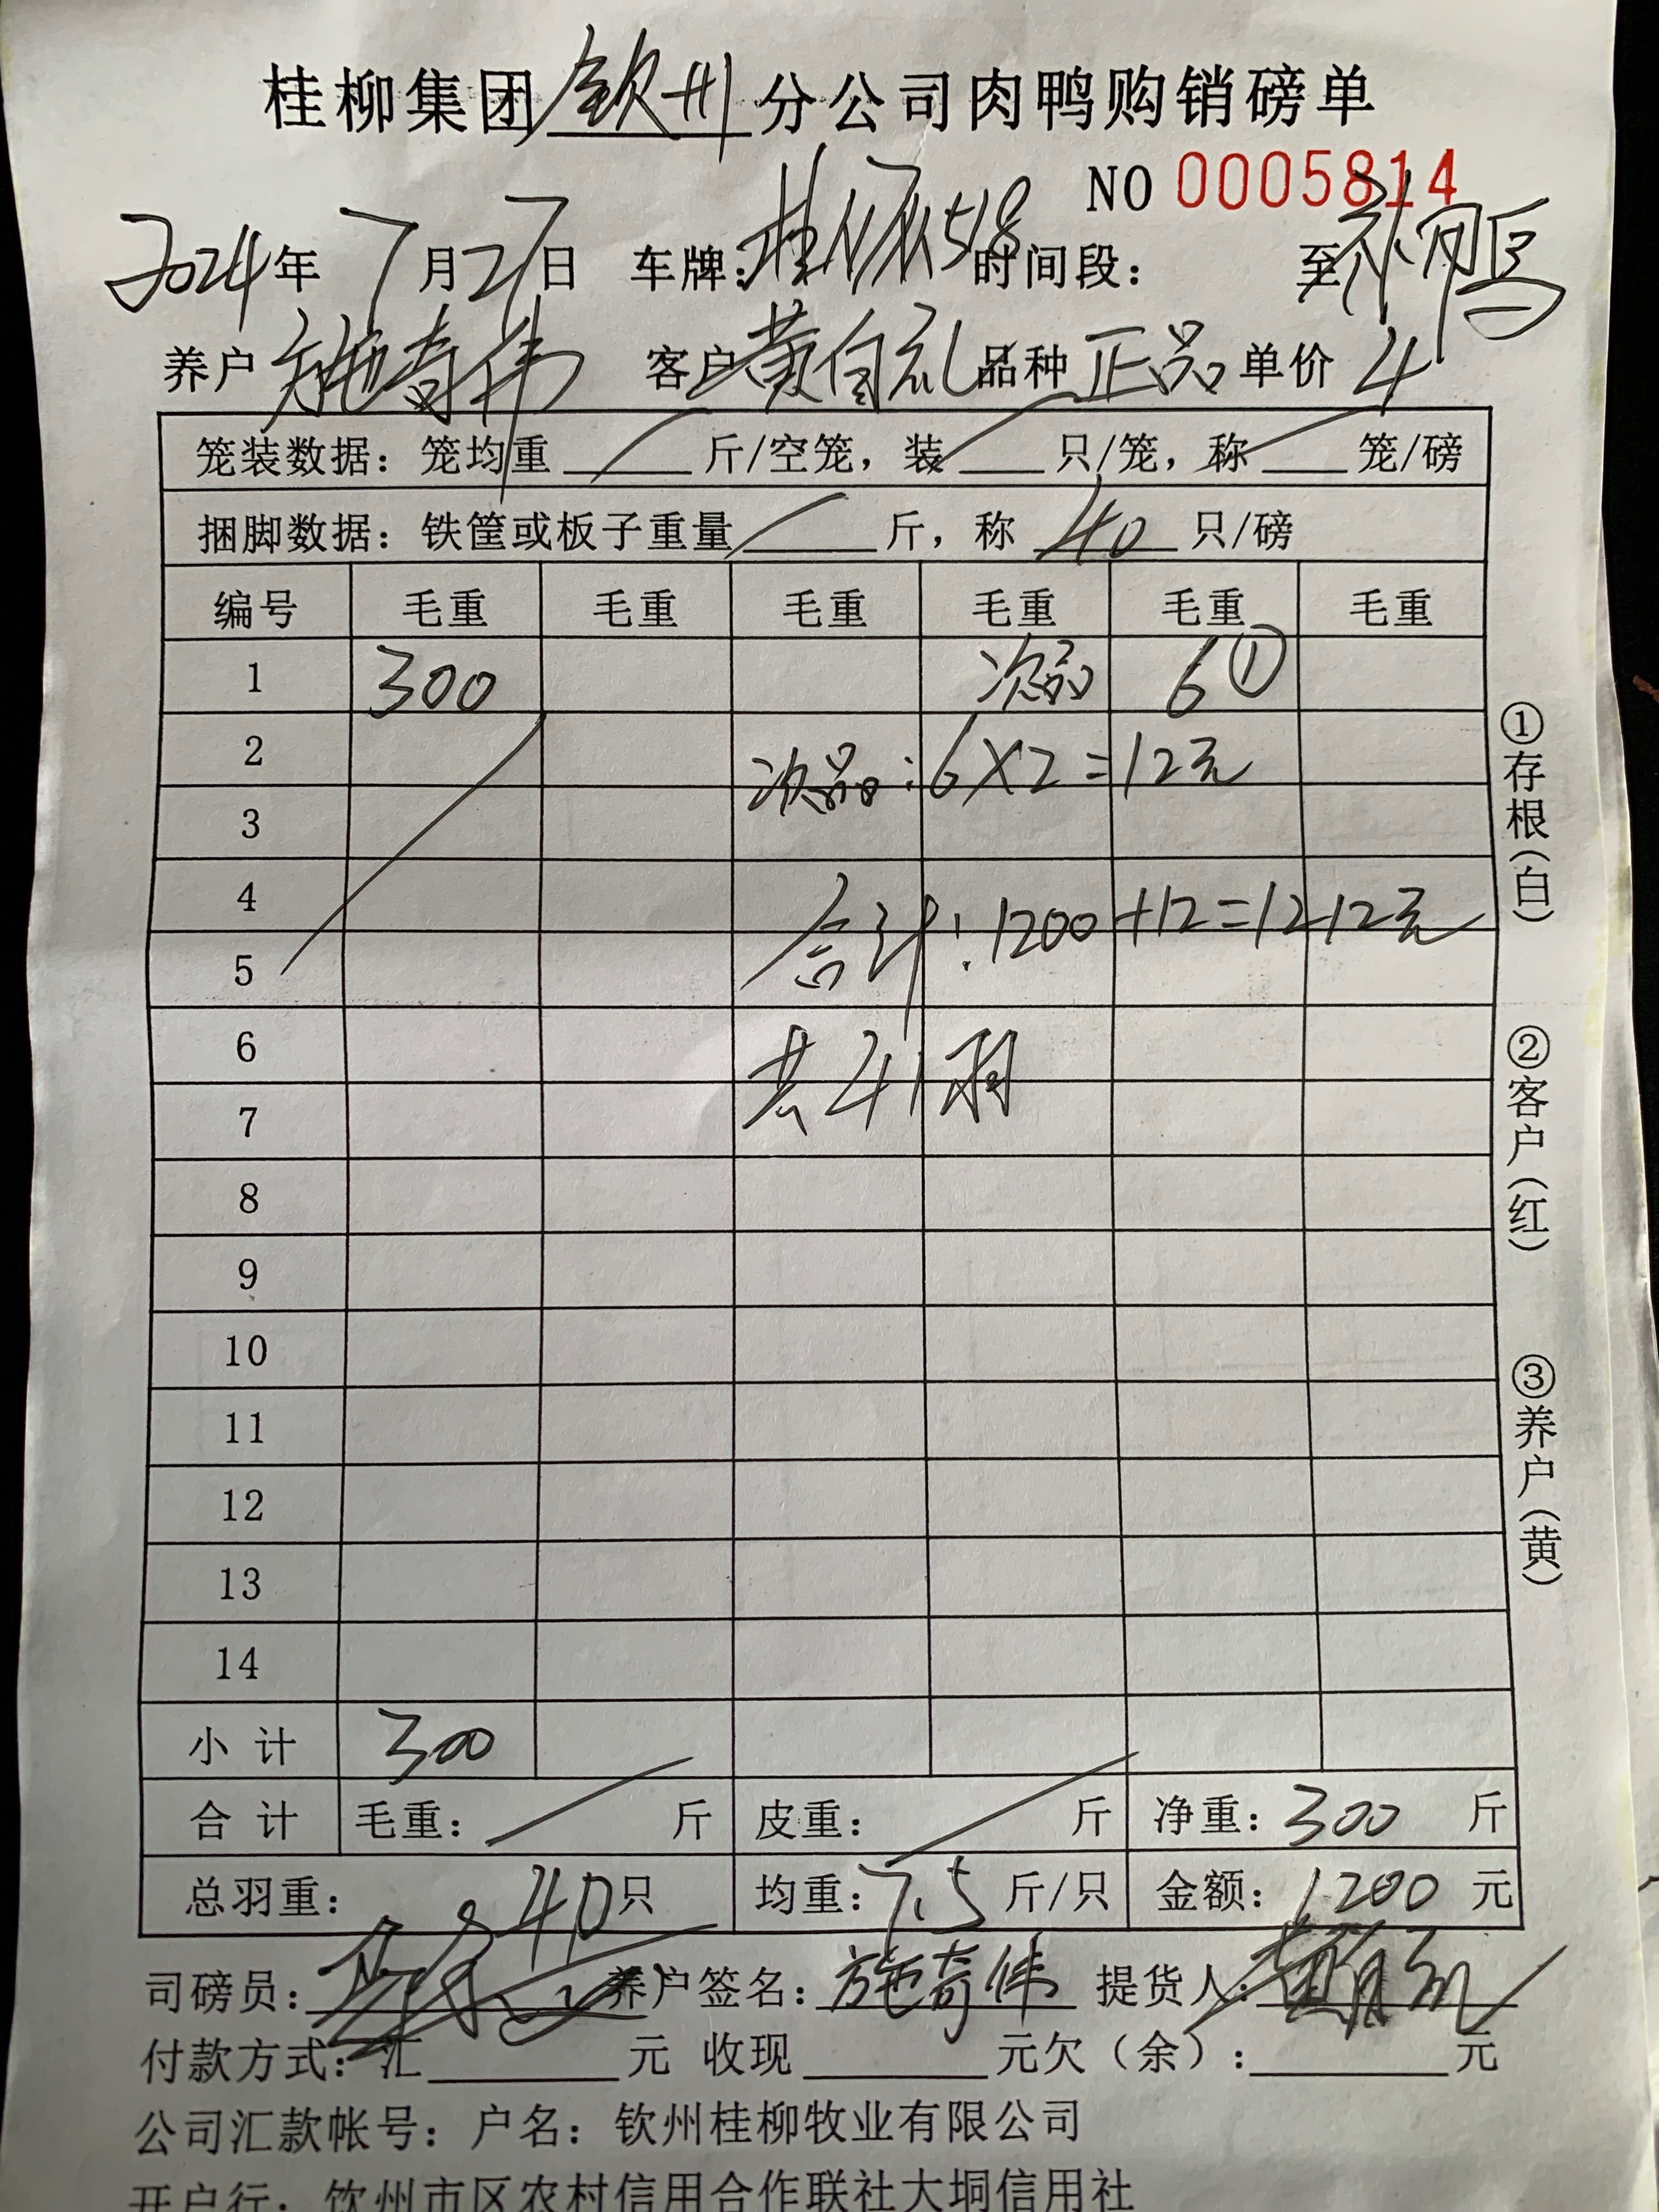 桂柳集团 钦州 分公司肉鸭购销磅单
NO 0005814
2024年 7月27日 车牌: 时间段: 至 补鸭
养户 施奇伟 客户 黄自礼 品种 正品 单价 4
笼装数据: 笼均重 斤/空笼, 装 只/笼, 称 笼/磅
捆脚数据: 铁筐或板子重量 斤, 称 40 只/磅
编号 毛重 毛重 毛重 毛重 毛重 毛重
1 300 次品 6①
2
次品:6×2=12元
3
4
合计:1200+12=1212元
5
6
共41羽
7
8
9
10
11
12
13
14
小计 300
合计 毛重: 斤 皮重: 斤 净重: 300 斤
总羽重: 40只 均重: 7.5 斤/只 金额: 1200 元
司磅员: 养户签名: 施奇伟 提货人:
付款方式: 汇 元 收现 元欠(余): 元
公司汇款帐号: 户名: 钦州桂柳牧业有限公司
开户行: 钦州市区农村信用合作联社大垌信用社
①存根(白)
②客户(红)
③养户(黄)